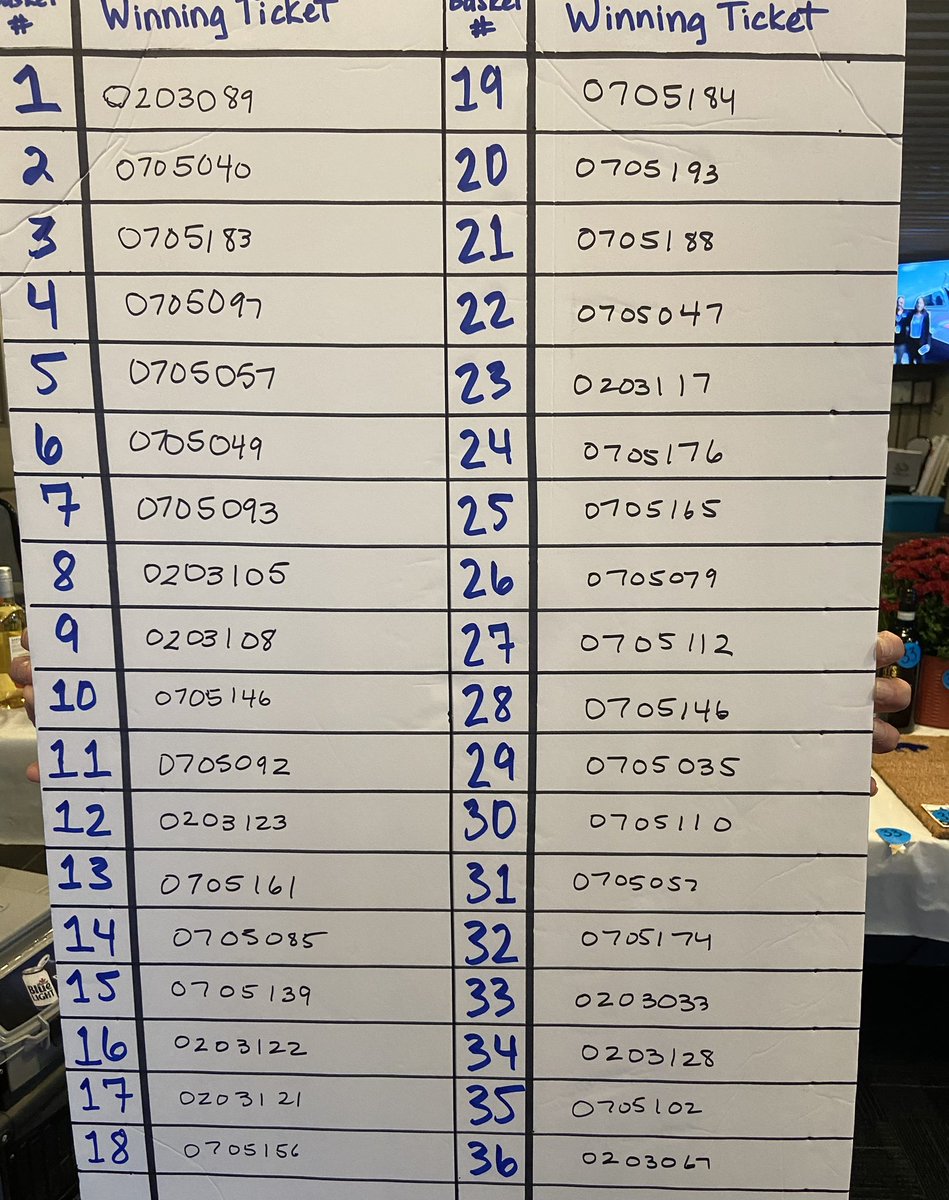 Basket Winning Ticket Basket Winning Ticket
# #
1 0203089 19 0705184
2 0705040 20 0705193
3 0705183 21 0705188
4 0705097 22 0705047
5 0705057 23 0203117
6 0705049 24 0705176
7 0705093 25 0705165
8 0203105 26 0705079
9 0203108 27 0705112
10 0705146 28 0705146
11 0705092 29 0705035
12 0203123 30 0705110
13 0705161 31 0705052
14 0705085 32 0705174
15 0705139 33 0203033
16 0203122 34 0203128
17 0203121 35 0705102
18 0705156 36 0203067
33
Blue
LIGHT